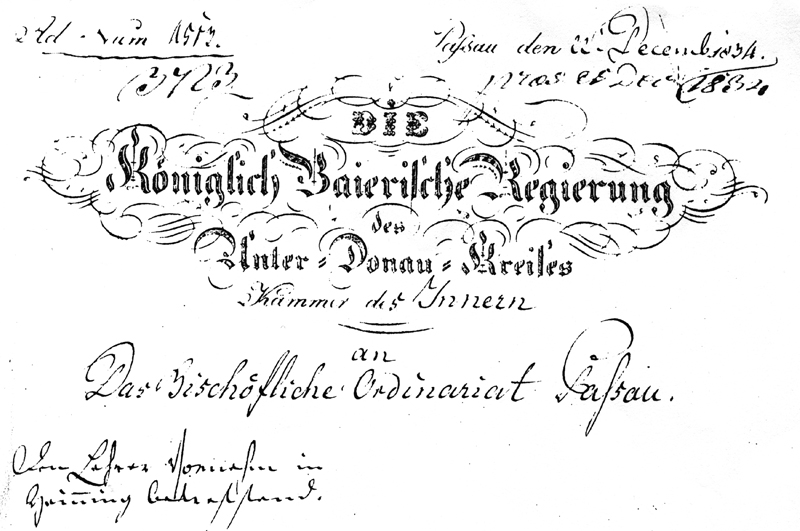 Ad Num 1513.
3723
Passau den 22t Decemb: 1834.
praes 28 Dec 1834
DIE
Königlich Baierische Regierung
des
Unter-Donau-Kreises
Kammer des Innern
an
Das Bischöfliche Ordinariat Passau.
Den Lehrer Vornehm in
Heining betreffend.